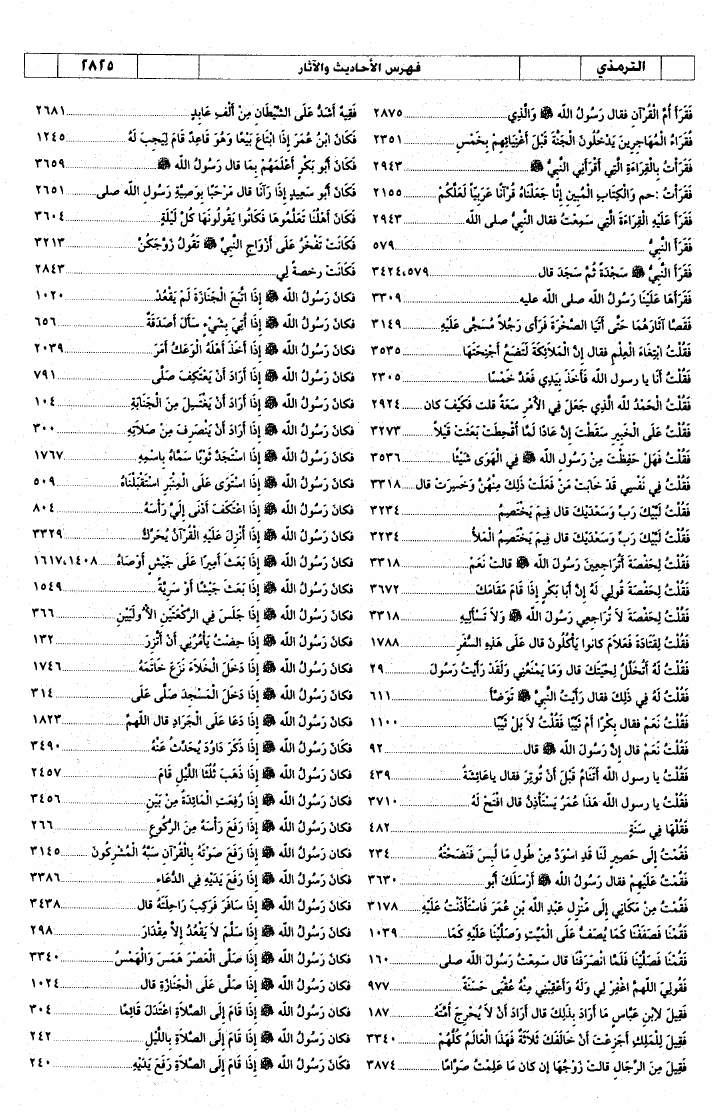 الترمذي
فهرس الأحاديث والآثار
٢٨٢٥
فَقَرَأَ أُمَّ الْقُرْآنِ فقال رَسُولُ اللَّه ﷺ وَالَّذِي ... ٢٨٧٥
فُقَرَاءُ الْمُهَاجِرِينَ يَدْخُلُونَ الْجَنَّةَ قَبْلَ أَغْنِيَائِهِمْ بِخَمْسِ ... ٢٣٥١
فَقَرَأْتُ بِالْقِرَاءَةِ الَّتِي أَقْرَأَنِي النَّبِيُّ ﷺ ... ٢٩٤٣
فَقَرَأْتُ :حم وَالْكِتَابِ الْمُبِينِ إِنَّا جَعَلْنَاهُ قُرْآنًا عَرَبِيًّا لَعَلَّكُمْ ... ٢١٥٥
فَقَرَأَ عَلَيْهِ الْقِرَاءَةَ الَّتِي سَمِعْتُ فقال النَّبِيُّ صلى الله ... ٢٩٤٣
فَقَرَأَ النَّبِيُّ ... ٥٧٩
فَقَرَأَ النَّبِيُّ ﷺ سَجْدَةً ثُمَّ سَجَدَ قال ... ٣٤٢٤،٥٧٩
فَقَرَأَهَا عَلَيْنَا رَسُولُ اللَّه صلى الله عليه ... ٣٣٠٩
فَقَصَّا آثَارَهُمَا حَتَّى أَتَيَا الصَّخْرَةَ فَرَأَى رَجُلاً مُسَجًّى عَلَيْهِ ... ٣١٤٩
فَقُلْتُ ابْتِغَاءَ الْعِلْمِ فقال إِنَّ الْمَلاَئِكَةَ لَتَضَعُ أَجْنِحَتَهَا ... ٣٥٣٥
فَقُلْتُ أَنَا يا رسول اللَّه فَأَخَذَ بِيَدِي فَعَدَّ خَمْسًا ... ٢٣٠٥
فَقُلْتُ الْحَمْدُ لله الَّذِي جَعَلَ فِي الأَمْرِ سَعَةً قلت فَكَيْفَ كان ... ٢٩٢٤
فَقُلْتُ عَلَى الْخَبِيرِ سَقَطْتَ إِنَّ عَادًا لَمَّا أُقْحِطَتْ بَعَثَتْ قَيْلاً ... ٣٢٧٣
فَقُلْتُ فَهَلْ حَفِظْتَ مِنْ رَسُولِ اللَّه ﷺ فِي الْهَوَى شَيْئًا ... ٣٥٣٦
فَقُلْتُ فِي نَفْسِي قَدْ خَابَتْ مَنْ فَعَلَتْ ذَلِكَ مِنْهُنَّ وَخَسِرَتْ قال ... ٣٣١٨
فَقُلْتُ لَبَّيْكَ رَبِّ وَسَعْدَيْكَ قال فِيمَ يَخْتَصِمُ ... ٣٢٣٤
فَقُلْتُ لَبَّيْكَ رَبِّ وَسَعْدَيْكَ قال فِيمَ يَخْتَصِمُ الْمَلأُ ... ٣٢٣٤
فَقُلْتُ لِحَفْصَةَ أَتُرَاجِعِينَ رَسُولَ اللَّه ﷺ قالت نَعَمْ ... ٣٣١٨
فَقُلْتُ لِحَفْصَةَ قُولِي لَهُ إِنَّ أَبَا بَكْرٍ إِذَا قَامَ مَقَامَكَ ... ٣٦٧٢
فَقُلْتُ لِحَفْصَةَ لاَ تُرَاجِعِي رَسُولَ اللَّه ﷺ وَلاَ تَسْأَلِيهِ ... ٣٣١٨
فَقُلْتُ لِقَتَادَةَ فَعَلاَمَ كانوا يَأْكُلُونَ قال عَلَى هَذِهِ السُّفَرِ ... ١٧٨٨
فَقُلْتُ لَهُ أَتُخَلِّلُ لِحْيَتَكَ قال وَمَا يَمْنَعُنِي وَلَقَدْ رَأَيْتُ رَسُولَ ... ٢٩
فَقُلْتُ لَهُ فِي ذَلِكَ فقال رَأَيْتُ النَّبِيَّ ﷺ تَوَضَّأَ ... ٦١١
فَقُلْتُ نَعَمْ فقال بِكْرًا أَمْ ثَيِّبًا فَقُلْتُ لاَ بَلْ ثَيِّبًا ... ١١٠٠
فَقُلْتُ نَعَمْ قال إِنَّ رَسُولَ اللَّه ﷺ قال ... ٩٢
فَقُلْتُ يا رسول اللَّه أَتَنَامُ قَبْلَ أَنْ تُوتِرَ فقال يا عَائِشَةُ ... ٤٣٩
فَقُلْتُ يا رسول اللَّه هَذَا عُمَرُ يَسْتَأْذِنُ قال افْتَحْ لَهُ ... ٣٧١٠
فَقُلْهَا فِي سَنَةٍ ... ٤٨٢
فَقُمْتُ إِلَى حَصِيرٍ لَنَا قَدِ اسْوَدَّ مِنْ طُولِ مَا لُبِسَ فَنَضَحْتُهُ ... ٢٣٤
فَقُمْتُ عَلَيْهِمْ فقال رَسُولُ اللَّه ﷺ أَرْسَلَكَ أَبُو ... ٣٦٣٠
فَقُمْتُ مِنْ مَكَانِي إِلَى مَنْزِلِ عَبْدِ اللَّه بْنِ عُمَرَ فَاسْتَأْذَنْتُ عَلَيْهِ ... ٣١٧٨
فَقُمْنَا فَصَفَفْنَا كَمَا يُصَفُّ عَلَى الْمَيِّتِ وَصَلَّيْنَا عَلَيْهِ كَمَا ... ١٠٣٩
فَقُمْنَا فَصَلَّيْنَا فَلَمَّا انْصَرَفْنَا قال سَمِعْتُ رَسُولَ اللَّه صلى ... ١٦٠
فَقُولِيَ اللهمّ اغْفِرْ لِي وَلَهُ وَأَعْقِبْنِي مِنْهُ عُقْبَى حَسَنَةً ... ٩٧٧
فَقِيلَ لاِبْنِ عَبَّاسٍ مَا أَرَادَ بِذَلِكَ قال أَرَادَ أَنْ لاَ يُحْرِجَ أُمَّتَهُ ... ١٨٧
فَقِيلَ لِلْمَلِكِ أَجَزِعْتَ أَنْ خَالَفَكَ ثَلاَثَةٌ فَهَذَا الْعَالَمُ كُلُّهُمْ ... ٣٣٤٠
فَقِيلَ مِنَ الرِّجَالِ قالتْ زَوْجُهَا إن كان مَا عَلِمْتُ صَوَّامًا ... ٣٨٧٤
فَقِيهٌ أَشَدُّ عَلَى الشَّيْطَانِ مِنْ أَلْفِ عَابِدٍ ... ٢٦٨١
فَكَانَ ابْنُ عُمَرَ إِذَا ابْتَاعَ بَيْعًا وَهُوَ قَاعِدٌ قَامَ لِيَجِبَ لَهُ ... ١٢٤٥
فَكَانَ أَبُو بَكْرٍ أَعْلَمَهُمْ بِمَا قال رَسُولُ اللَّه ﷺ ... ٣٦٥٩
فَكَانَ أَبُو سَعِيدٍ إِذَا رَآنَا قال مَرْحَبًا بِوَصِيَّةِ رَسُولِ اللَّه صلى ... ٢٦٥١
فَكَانَ أَهْلُنَا تَعَلَّمُوهَا فَكَانُوا يَقُولُونَهَا كُلَّ لَيْلَةٍ ... ٣٦٠٤
فَكَانَتْ تَفْخَرُ عَلَى أَزْوَاجِ النَّبِيِّ ﷺ تَقُولُ زَوَّجَكُنَّ ... ٣٢١٣
فَكَانَتْ رخصةً لِي ... ٢٨٤٣
فكان رَسُولُ اللَّه ﷺ إِذَا اتَّبَعَ الْجَنَازَةَ لَمْ يَقْعُدْ ... ١٠٢٠
فكان رَسُولُ اللَّه ﷺ إِذَا أُتِيَ بِشَيْءٍ سَأَلَ أَصَدَقَةٌ ... ٦٥٦
فكان رَسُولُ اللَّه ﷺ إِذَا أَخَذَ أَهْلَهُ الْوَعَكُ أَمَرَ ... ٢٠٣٩
فكان رَسُولُ اللَّه ﷺ إِذَا أَرَادَ أَنْ يَعْتَكِفَ صَلَّى ... ٧٩١
فكان رَسُولُ اللَّه ﷺ إِذَا أَرَادَ أَنْ يَغْتَسِلَ مِنَ الْجَنَابَةِ ... ١٠٤
فكان رَسُولُ اللَّه ﷺ إِذَا أَرَادَ أَنْ يَنْصَرِفَ مِنْ صَلاَتِهِ ... ٣٠٠
فكان رَسُولُ اللَّه ﷺ إِذَا اسْتَجَدَّ ثَوْبًا سَمَّاهُ بِاسْمِهِ ... ١٧٦٧
فكان رَسُولُ اللَّه ﷺ إِذَا اسْتَوَى عَلَى الْمِنْبَرِ اسْتَقْبَلْنَاهُ ... ٥٠٩
فكان رَسُولُ اللَّه ﷺ إِذَا اعْتَكَفَ أَدْنَى إِلَيَّ رَأْسَهُ ... ٨٠٤
فكان رَسُولُ اللَّه ﷺ إِذَا أُنْزِلَ عَلَيْهِ الْقُرْآنُ يُحَرِّكُ ... ٣٣٢٩
فكان رَسُولُ اللَّه ﷺ إِذَا بَعَثَ أَمِيرًا عَلَى جَيْشٍ أَوْصَاهُ ... ١٦١٧،١٤٠٨
فكان رَسُولُ اللَّه ﷺ إِذَا بَعَثَ جَيْشًا أَوْ سَرِيَّةً ... ١٥٤٩
فكان رَسُولُ اللَّه ﷺ إِذَا جَلَسَ فِي الرَّكْعَتَيْنِ الأُولَيَيْنِ ... ٣٦٦
فكان رَسُولُ اللَّه ﷺ إِذَا حِضْتُ يَأْمُرُنِي أَنْ أَتَّزِرَ ... ١٣٢
فكان رَسُولُ اللَّه ﷺ إِذَا دَخَلَ الْخَلاَءَ نَزَعَ خَاتَمَهُ ... ١٧٤٦
فكان رَسُولُ اللَّه ﷺ إِذَا دَخَلَ الْمَسْجِدَ صَلَّى عَلَى ... ٣١٤
فكان رَسُولُ اللَّه ﷺ إِذَا دَعَا عَلَى الْجَرَادِ قال اللهمّ ... ١٨٢٣
فكان رَسُولُ اللَّه ﷺ إِذَا ذَكَرَ دَاوُدَ يُحَدِّثُ عَنْهُ ... ٣٤٩٠
فكان رَسُولُ اللَّه ﷺ إِذَا ذَهَبَ ثُلُثَا اللَّيْلِ قَامَ ... ٢٤٥٧
فكان رَسُولُ اللَّه ﷺ إِذَا رُفِعَتِ الْمَائِدَةُ مِنْ بَيْنِ ... ٣٤٥٦
فكان رَسُولُ اللَّه ﷺ إِذَا رَفَعَ رَأْسَهُ مِنَ الرُّكُوعِ ... ٢٦٦
فكان رَسُولُ اللَّه ﷺ إِذَا رَفَعَ صَوْتَهُ بِالْقُرْآنِ سَبَّهُ الْمُشْرِكُونَ ... ٣١٤٥
فكان رَسُولُ اللَّه ﷺ إِذَا رَفَعَ يَدَيْهِ فِي الدُّعَاءِ ... ٣٣٨٦
فكان رَسُولُ اللَّه ﷺ إِذَا سَافَرَ فَرَكِبَ رَاحِلَتَهُ قال ... ٣٤٣٨
فكان رَسُولُ اللَّه ﷺ إِذَا سَلَّمَ لاَ يَقْعُدُ إِلاَّ مِقْدَارَ ... ٢٩٨
فكان رَسُولُ اللَّه ﷺ إِذَا صَلَّى الْعَصْرَ هَمَسَ وَالْهَمْسُ ... ٣٣٤٠
فكان رَسُولُ اللَّه ﷺ إِذَا صَلَّى عَلَى الْجَنَازَةِ قال ... ١٠٢٤
فكان رَسُولُ اللَّه ﷺ إِذَا قَامَ إِلَى الصَّلاَةِ اعْتَدَلَ قَائِمًا ... ٣٠٤
فكان رَسُولُ اللَّه ﷺ إِذَا قَامَ إِلَى الصَّلاَةِ بِاللَّيْلِ ... ٢٤٢
فكان رَسُولُ اللَّه ﷺ إِذَا قَامَ إِلَى الصَّلاَةِ رَفَعَ يَدَيْهِ ... ٢٤٠